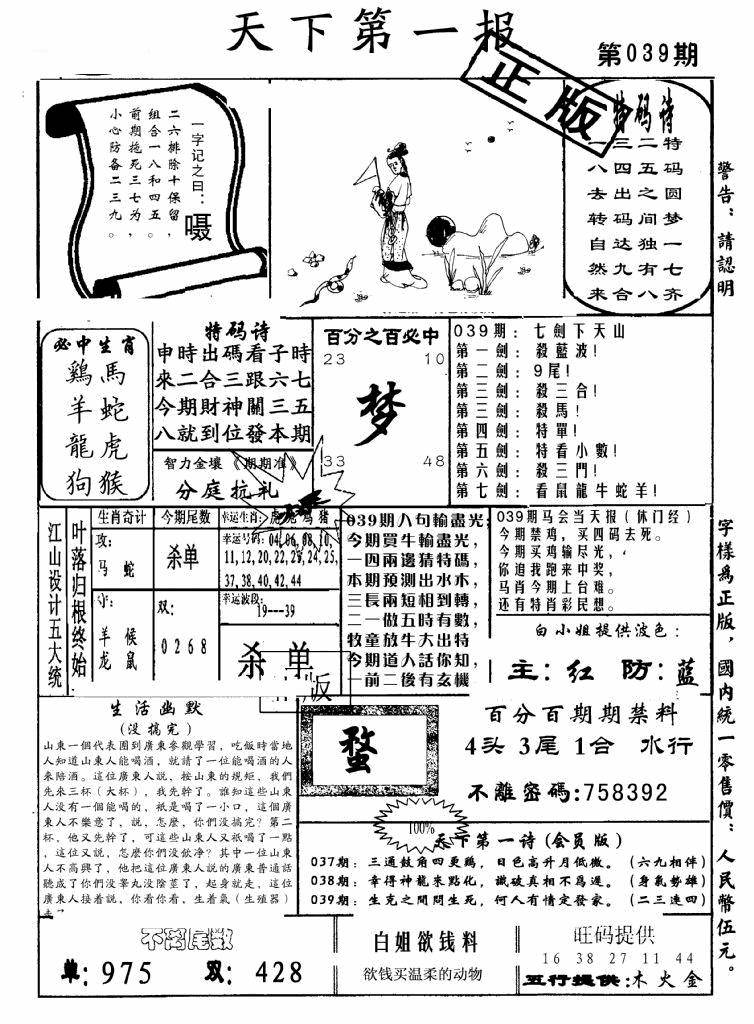 天下第一报
第039期
正版
一字记之曰：
嗫
二六排除十保留，
组合一八和四五。
前期拖死三七为，
小心防备二三九。
特码诗
一三二特
八四五码
去出之圆
转码间梦
自达独一
然九有七
来合八齐
警告：請認明
字樣為正版，國内統一零售價：人民幣伍元。
必中生肖
鷄馬
羊蛇
龍虎
狗猴
特码诗
申時出碼看子時
來二合三跟六七
今期財神關三五
八就到位發本期
智力金壤《期期准》
分庭抗礼
百分之百必中
23 10
梦
33 48
039期：七劍下天山
第一劍：殺藍波！
第二劍：9尾！
第三劍：殺三合！
第三劍：殺馬！
第四劍：特單！
第五劍：特看小數！
第六劍：殺三門！
第七劍：看鼠龍牛蛇羊！
江山设计五大统
叶落归根终始
生肖奇计
攻：
马 蛇
守：
羊 候
龙 鼠
今期尾数
杀单
双：
0268
幸运生肖：虎兔马猪
幸运号码：04,06,08,10,
11,12,20,22,29,24,25,
37,38,40,42,44
幸运波段：
19---39
杀单
版
039期八句輸盡光：
今期買牛輸盡光，
一四兩邊猜特碼，
本期預測出水木，
三長兩短相到轉，
二一做五時有數，
牧童放牛大出特
今期道人話你知，
一前二後有玄機
039期马会当天报（休门经）
今期禁鸡，买四码去死。
今期买鸡输尽光，
你追我跑来中奖，
马肖今期上台难。
还有特肖彩民想。
白小姐提供波色：
主：红 防：蓝
生活幽默
（没搞完）
山東一個代表團到廣東參觀學習，吃飯時當地
人知道山東人能喝酒，就請了一位能喝酒的人
來陪酒。這位廣東人說，按山東的規矩，我們
先來三杯（大杯），我先幹了。誰知這些山東
人没有一個能喝的，祇是喝了一小口，這個廣
東人不樂意了，説，怎麽，你們没搞完？第二
杯，他又先幹了，可這些山東人又祇喝了一點
，這位又説，怎麽你們没飲净？其中一位山東
人不高興了，他把這位廣東人説的廣東普通話
聽成了你們没睾丸没陰莖了，起身就走，這位
廣東人接着說，你看你看，生着氣（生殖器）
走了
蝥
百分百期期禁料
4头 3尾 1合 水行
不離密碼:758392
100%
天下第一诗(会员版)
037期：三通鼓角四更鷄，日色高升月低微。（六九相伴）
038期：幸得神龍來點化，識破真相不爲遲。（身氣勢雄）
039期：生克之間問生死，何人有情定發家。（二三连四）
不离尾数
单: 975 双: 428
白姐欲钱料
欲钱买温柔的动物
旺码提供
16 38 27 11 44
五行提供:木火金